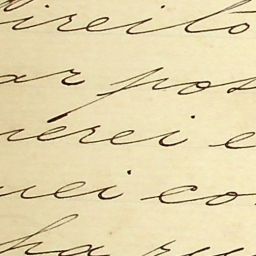 direito
ar pos
erei e
uei co
ha